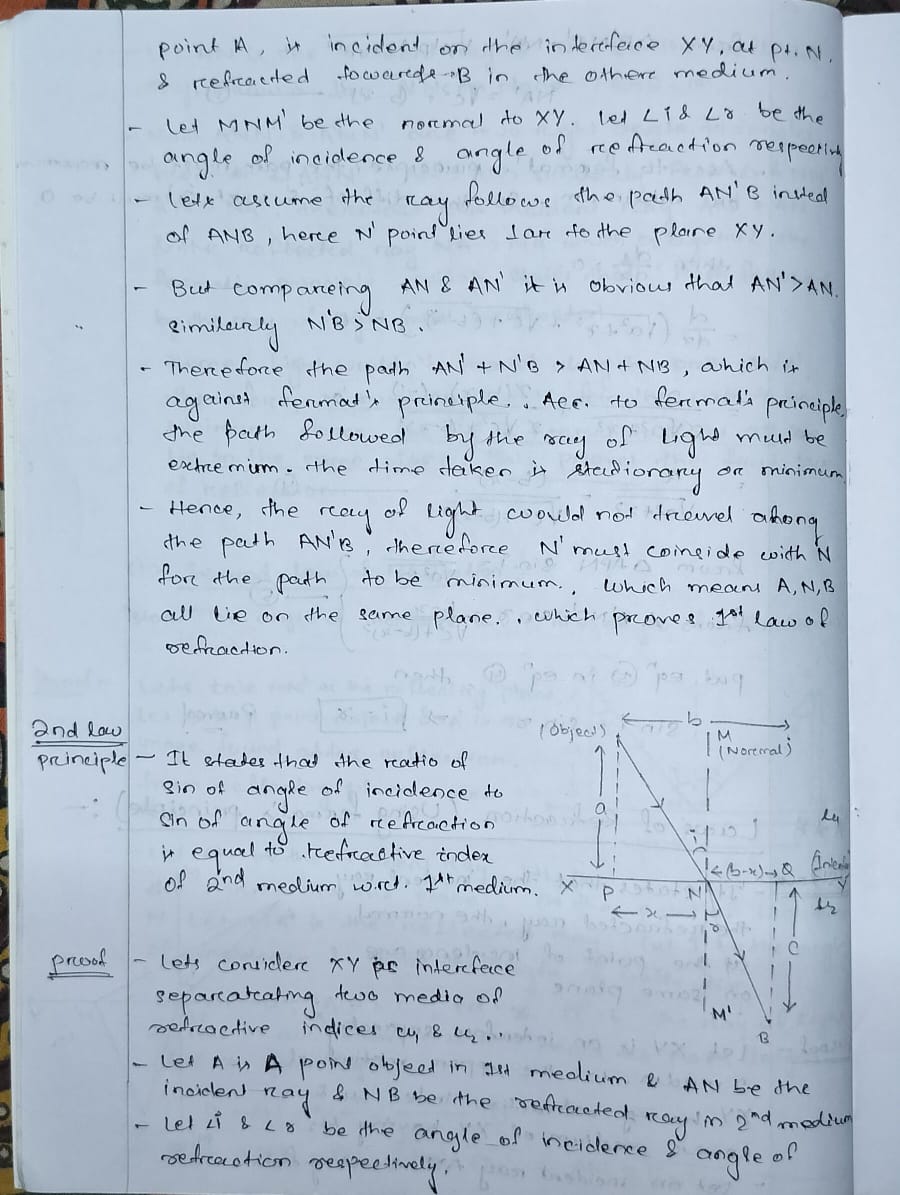 point A, it incident on the interface XY, at pt. N.
& refracted towards B in the other medium.
- Let MNM' be the normal to XY. let ∠i & ∠r be the
angle of incidence & angle of refraction respectivly
- lets assume the ray follows the path AN'B insted
of ANB, here N' point lies ⊥ar to the plane XY.
- But compareing AN & AN' it is obvious that AN' > AN.
similarly N'B > NB.
- Therefore the path AN' + N'B > AN + NB, which is
against fermat's principle. Acc. to fermat's principle,
the path followed by the ray of light must be
extremium. the time taken is stationary or minimum
- Hence, the ray of light would not travel along
the path AN'B, therefore N' must coinside with N
for the path to be minimum., which means A, N, B
all lie on the same plane. , which proves 1st law of
refraction.
2nd law
principle - It states that the ratio of
sin of angle of incidence to
sin of angle of refraction
is equal to refractive index
of 2nd medium w.r.t. 1st medium.
(object)
b
M
(Normal)
a
i
(b-x) Q
X P N Y
x
r
c
M'
B
μ1
μ2
proof - Lets considere XY as interface
separatating two media of
refractive indices μ1 & μ2.
- Let A is A point object in 1st medium & AN be the
incident ray & NB be the refracted ray in 2nd medium
- Let ∠i & ∠r be the angle of incidence & angle of
refraction respectively.